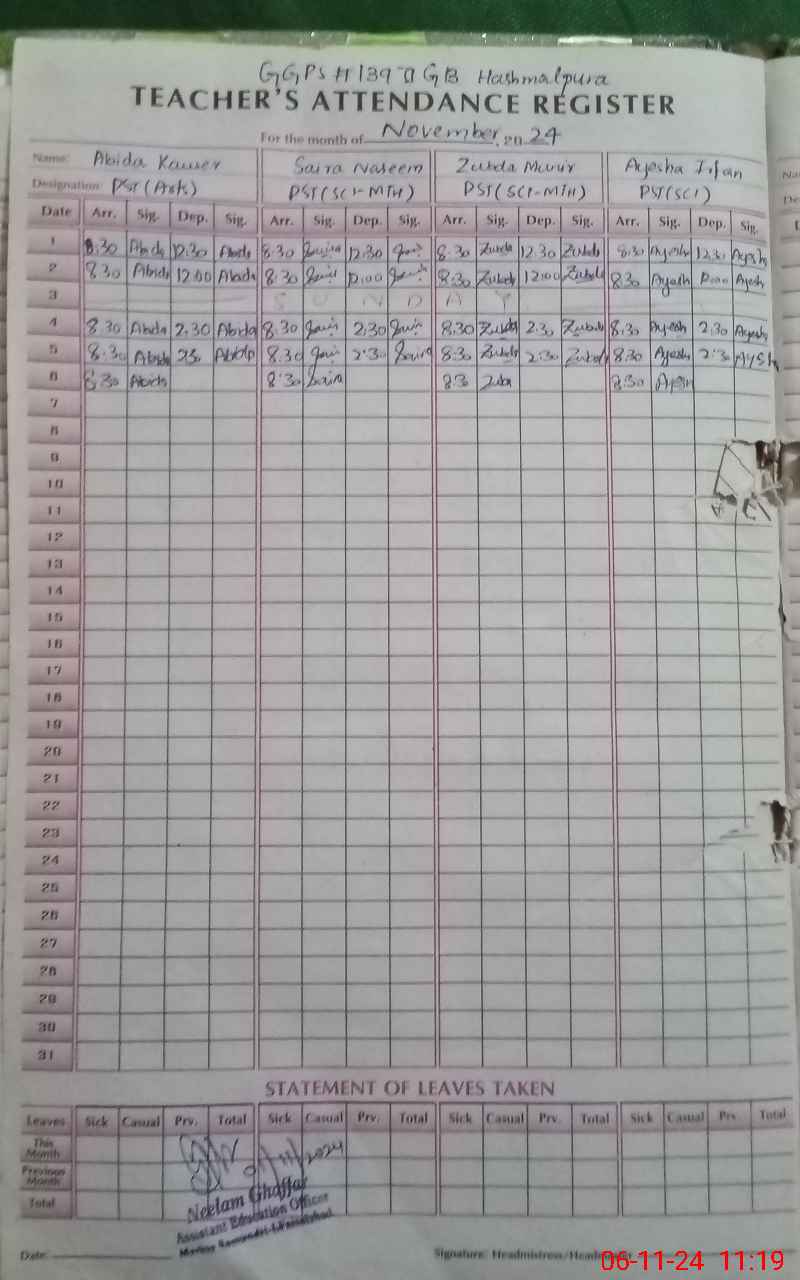 GGPS # 139 GB Hashmalpura
TEACHER'S ATTENDANCE REGISTER
For the month of November, 2024
Name: Abida Kauser Saira Naseem Zubda Munir Ayesha Irfan
Designation: PST (Arts) PST (SCI-MTH) PST (SCI-MTH) PST (SCI)
Date Arr. Sig. Dep. Sig. Arr. Sig. Dep. Sig. Arr. Sig. Dep. Sig. Arr. Sig. Dep. Sig.
1 8.30 Abida 12.30 Abida 8.30 Saira 12.30 8.30 Zubda 12.30 Zubda 8.30 Ayesh 12.30 Ayesh
2 8.30 Abida 12.00 Abida 8.30 12.00 8.30 Zubda 12:00 Zubda 8.30 Ayesh 12.00 Ayesh
3 S U N D A Y
4 8.30 Abida 2.30 Abida 8.30 2.30 8.30 Zubda 2.30 Zubda 8.30 Ayesh 2.30 Ayesh
5 8.30 Abida 2.30 Abida 8.30 2.30 Saira 8.30 Zubda 2.30 Zubda 8.30 Ayesh 2.30 Aysh
6 8.30 Abida 8.30 Saira 8.30 Zuba 8.30 Ayesh
7
8
9
10
11
12
13
14
15
16
17
18
19
20
21
22
23
24
25
26
27
28
29
30
31
STATEMENT OF LEAVES TAKEN
Leaves Sick Casual Prv. Total Sick Casual Prv. Total Sick Casual Prv. Total Sick Casual Prv. Total
This Month
Previous Month
Total
11/2024
Neelam Ghaffar
Assistant Education Officer
Date: Signature: Headmistress/Headmaster
06-11-24 11:19